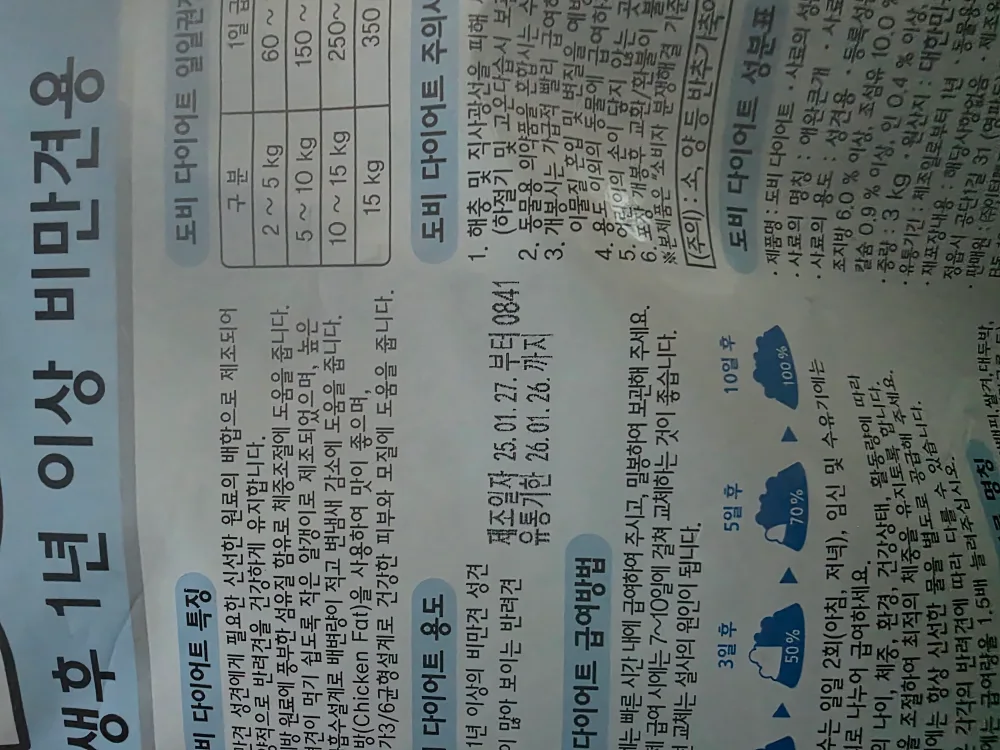 생후 1년 이상 비만견용
비 다이어트 특징
견 성견에게 필요한 신선한 원료의 배합으로 제조되어
적으로 반려견을 건강하게 유지합니다.
방 원료에 풍부한 섬유질 함유로 체중조절에 도움을 줍니다.
견이 먹기 쉽도록 작은 알갱이로 제조되었으며, 높은
흡수설계로 배변량이 적고 변냄새 감소에 도움을 줍니다.
방(Chicken Fat)을 사용하여 맛이 좋으며,
가3/6균형설계로 건강한 피부와 모질에 도움을 줍니다.
다이어트 용도
1년 이상의 비만견 성견
이 많아 보이는 반려견
제조일자 25.01.27. 부터 0841
유통기한 26.01.26. 까지
다이어트 급여방법
에는 빠른 시간 내에 급여하여 주시고, 밀봉하여 보관해 주세요.
급여 시에는 7~10일에 걸쳐 교체하는 것이 좋습니다.
교체는 설사의 원인이 됩니다.
3일 후 5일 후 10일 후
50% 70% 100%
수는 일일 2회(아침, 저녁), 임신 및 수유기에는
로 나누어 급여하세요.
의 나이, 체중, 환경, 건강상태, 활동량에 따라
을 조절하여 최적의 체중을 유지토록 합니다.
에는 항상 신선한 물을 별도로 공급해 주세요.
각각의 반려견에 따라 다를 수 있습니다.
는 급여량을 1.5배 늘려주십시오.
명칭
도비 다이어트 일일권
구 분 1일 급
2 ~ 5 kg 60 ~
5 ~ 10 kg 150 ~
10 ~ 15 kg 250~
15 kg 350
도비 다이어트 주의사
1. 해충 및 직사광선을 피해
(하절기 및 고온다습시 보
2. 동물용 의약품을 혼합시는
3. 개봉시는 가급적 빨리 급여하
이물질 혼입 및 변질을 예방
4. 용도 이외의 동물에 급여하
5. 어린이의 손이 닿지 않는
6. 포장 개봉후 교환/환불이
※본제품은 소비자 분쟁해결 기준
(주의) : 소, 양 등 반추가축에
도비 다이어트 성분표
· 제품명 : 도비 다이어트 · 사료의 성
· 사료의 명칭 : 애완큰개 · 사료
· 사료의 용도 : 성견용 · 등록성
조지방 6.0 % 이상, 조섬유 10.0 %
칼슘 0.9 % 이상, 인 0.4 % 이상
· 중량 : 3 kg · 원산지 : 대한민
· 유통기간 : 제조일로부터 1년 · 동물용
· 재포장내용 : 해당사항없음 · 제조
정읍시 공단1길 31
· 판매원 :